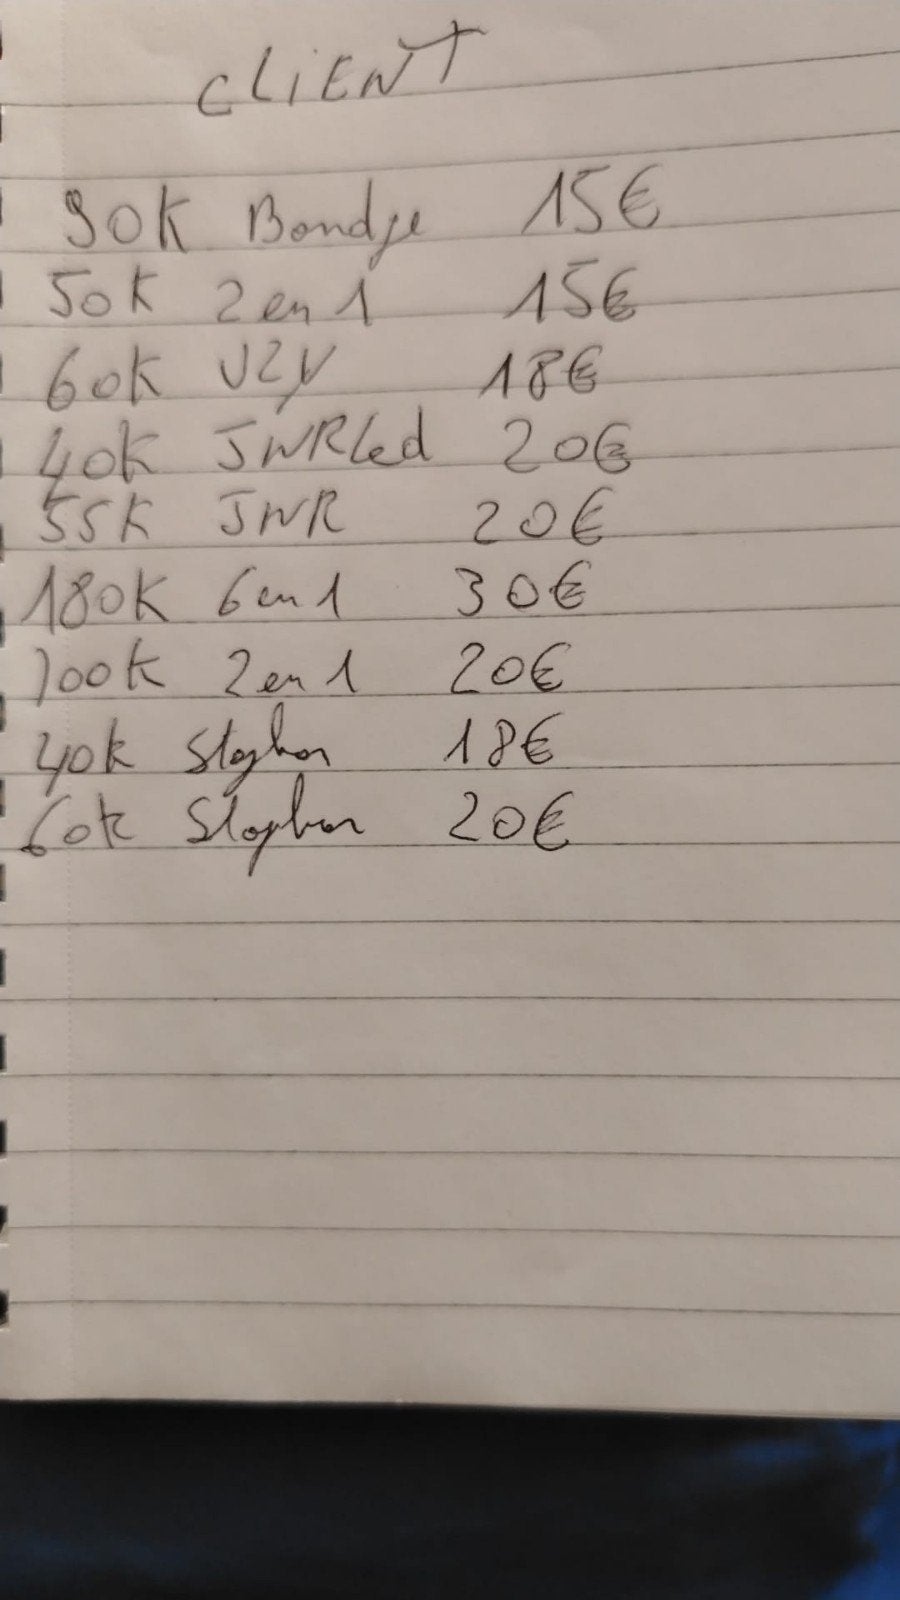 CLiENT
90K Bandje 15€
50K 2 en 1 15€
60K 18€
40K JNRLed 20€
55K JNR 20€
180K 6 en 1 30€
100K 2 en 1 20€
40k 18€
60k 20€